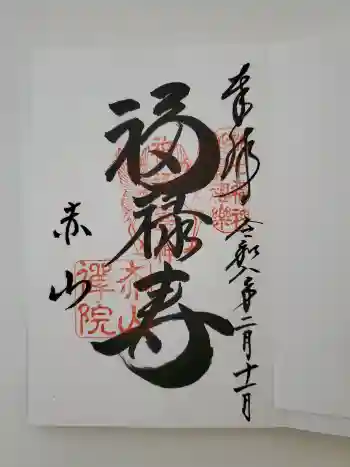 奉拝
令和八年二月十一日
福禄寿
赤山
赤山
禅院